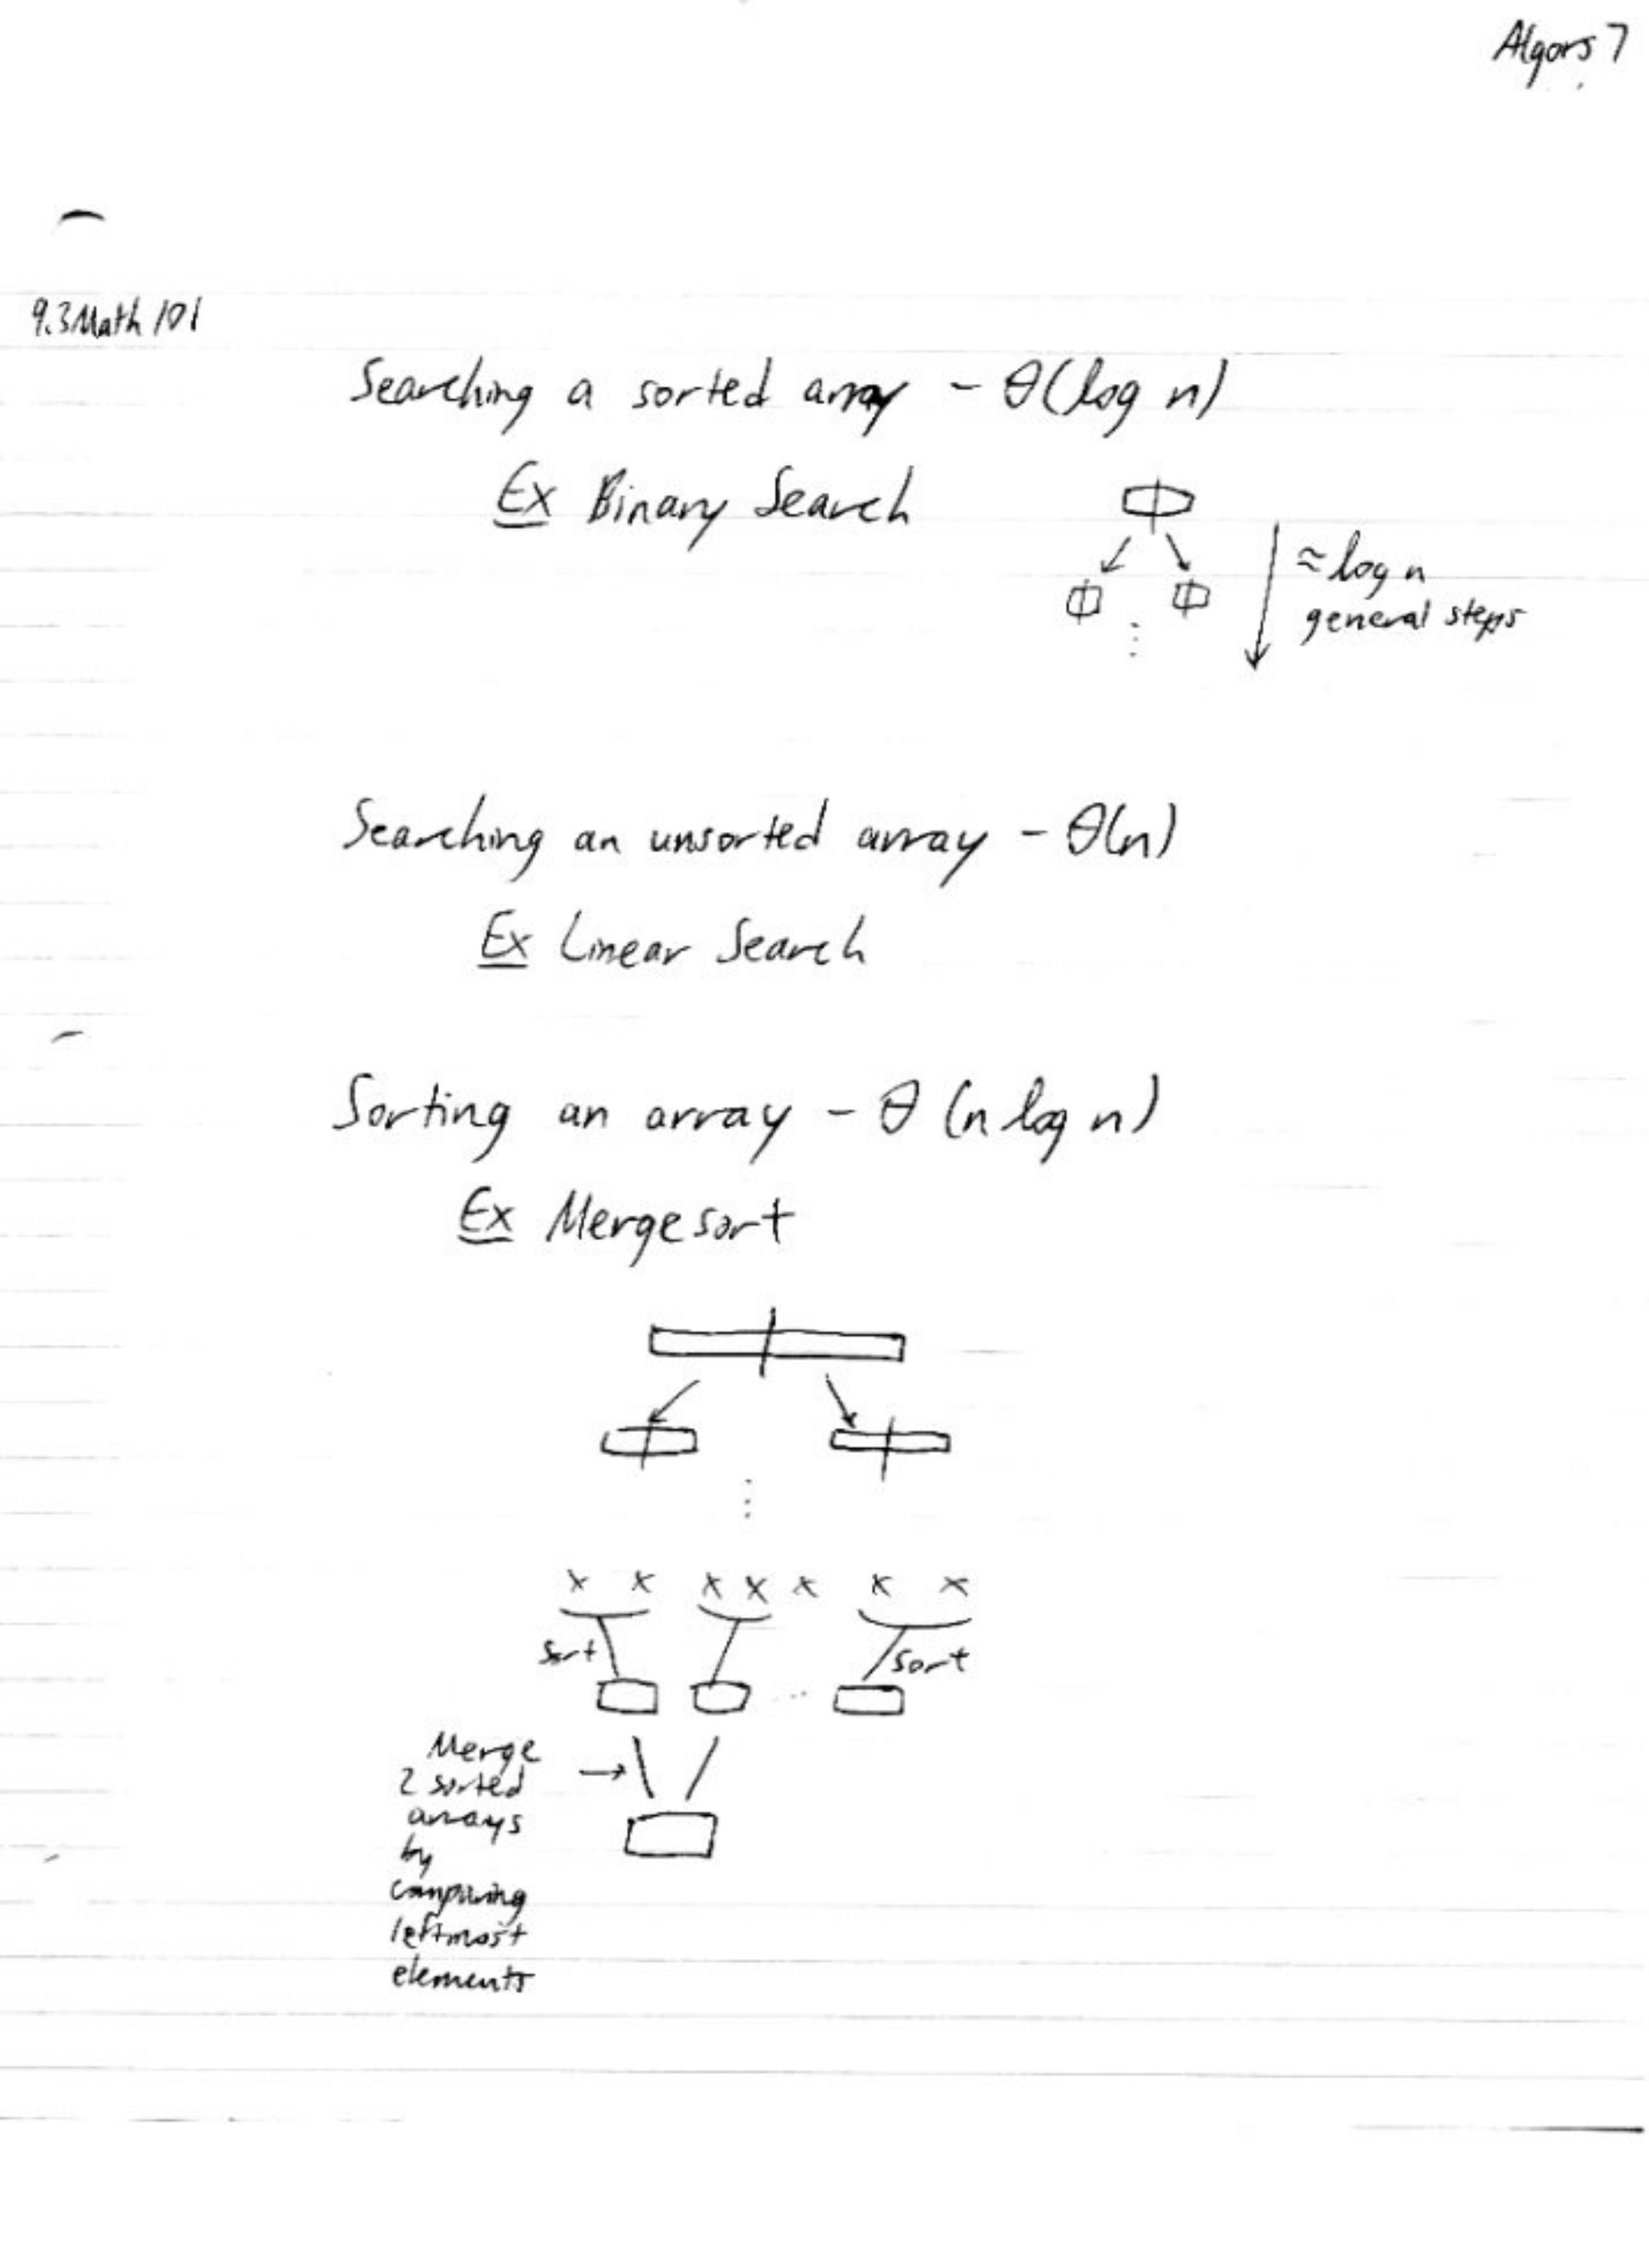 Algors 7
9.3 Math 101
Searching a sorted array - θ(log n)
Ex Binary Search
≈ log n
general steps
Searching an unsorted array - θ(n)
Ex Linear Search
Sorting an array - θ (n log n)
Ex Mergesort
x x x x x x x
sort
sort
Merge
2 sorted
arrays
by
comparing
leftmost
elements